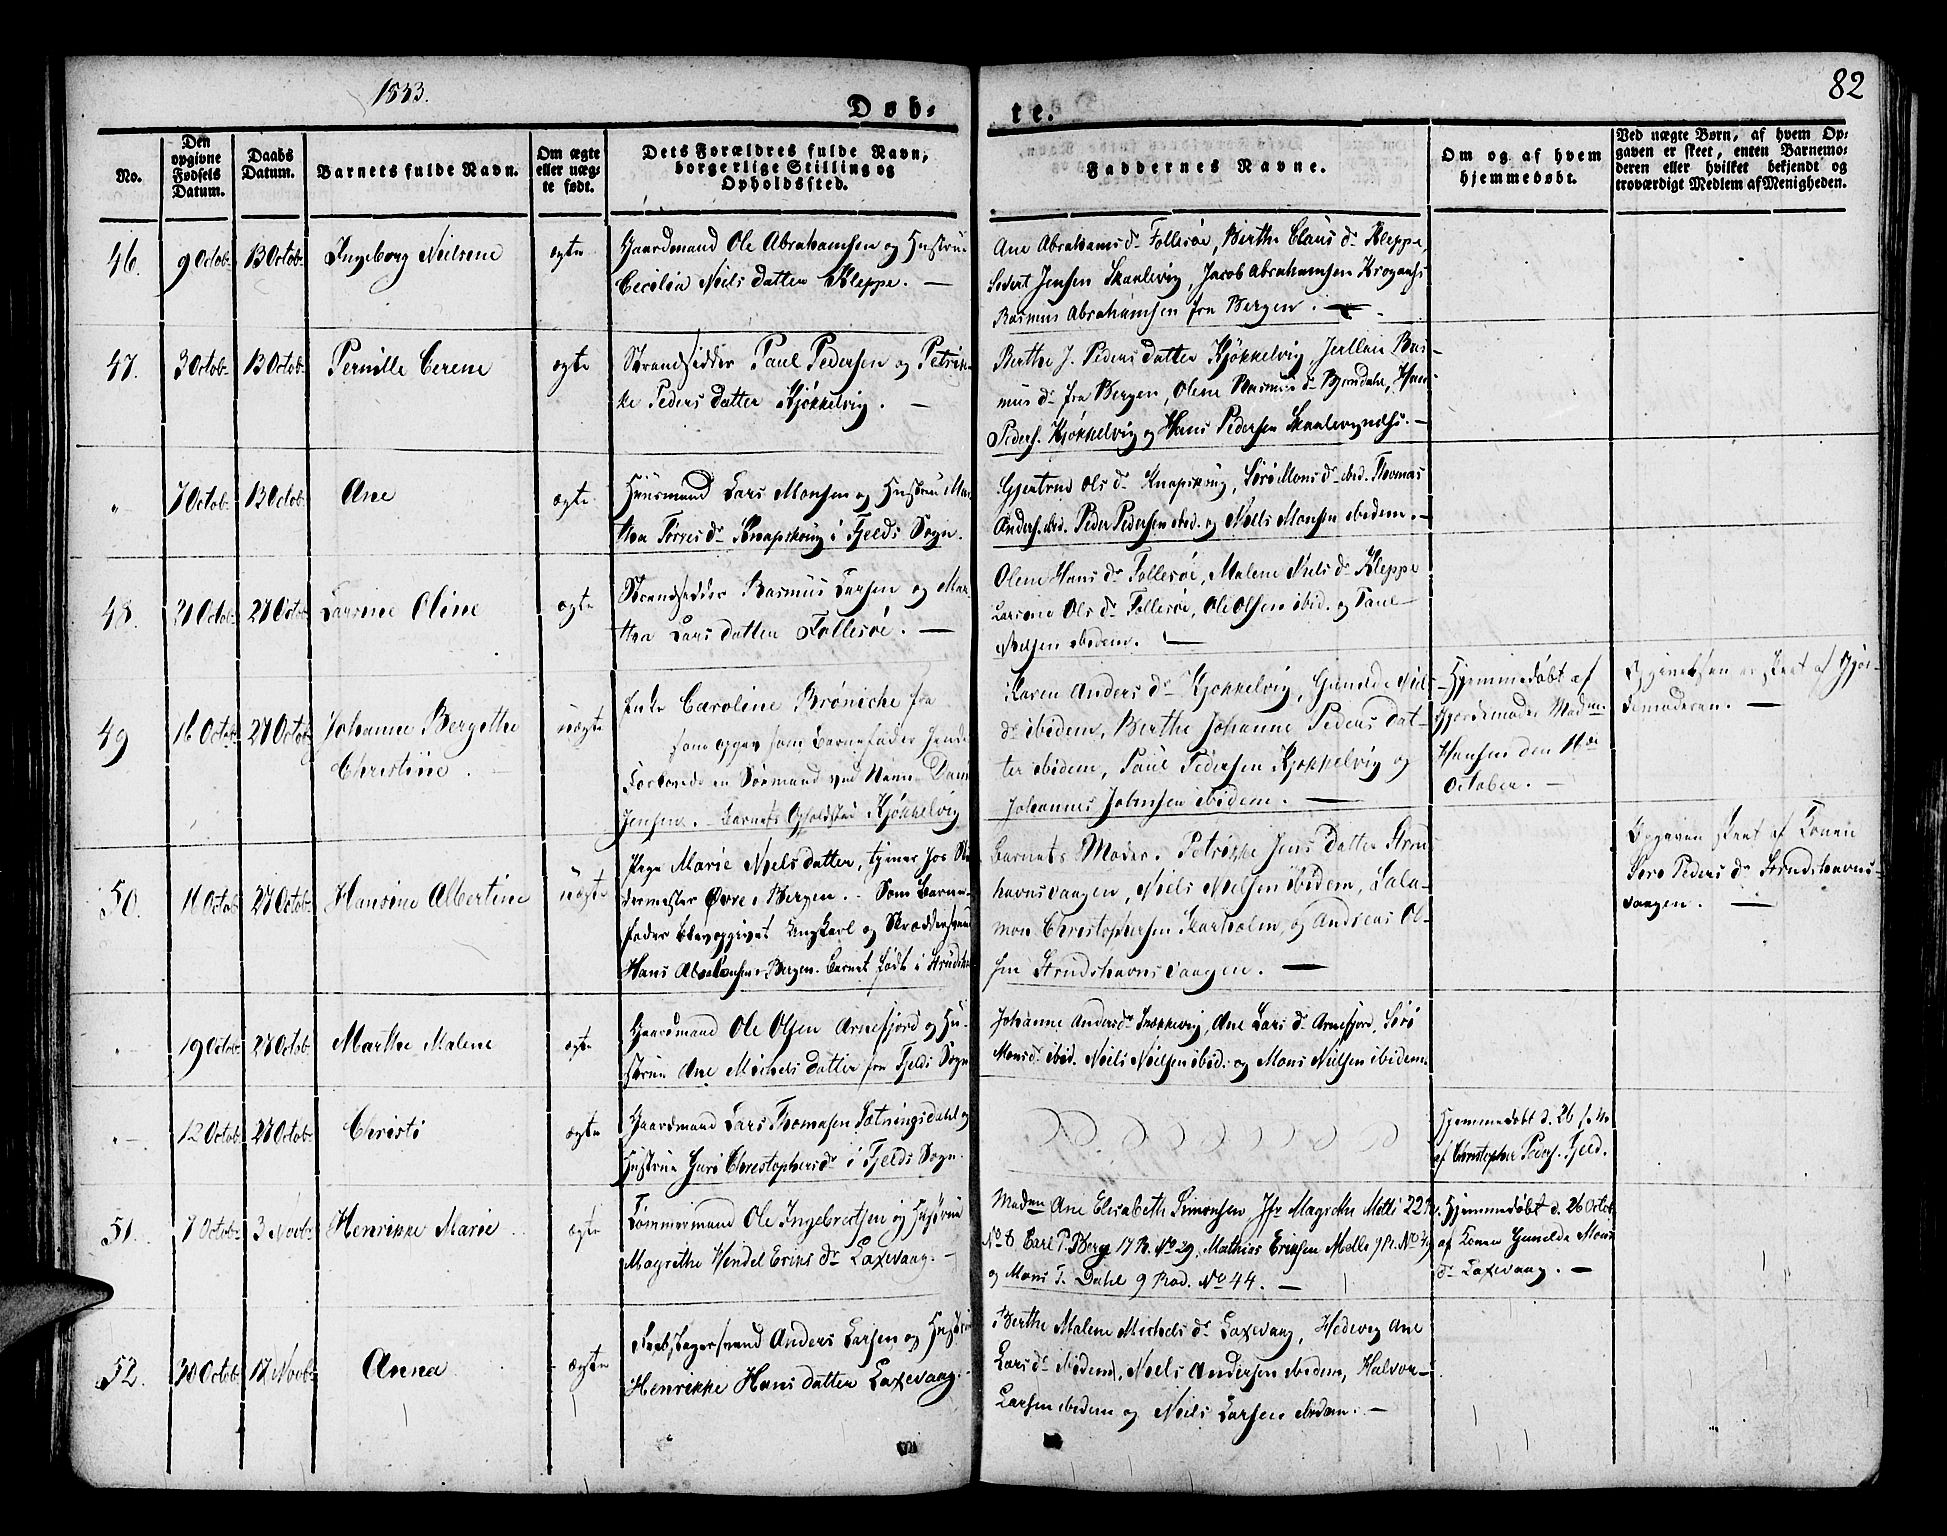 1833.
82
Døb-
te.
No.
Den opgivne Fødsels Datum.
Daabs Datum.
Barnets fulde Navn.
Om ægte eller uæg-te født.
Dets Forældres fulde Navn, borgerlige Stilling og Opholdssted.
Faddernes Navne.
Om og af hvem hjemmedøbt.
Ved uægte Børn, af hvem Op-
gaven er skeet, enten Barnemo-
deren eller hvilket bekjendt og
troværdigt Medlem af Menigheden.
46. 9 Octob. 13 Octob. Ingeborg Nielsine ægte
Gaardmand Ole Abrahamsen og Hustrue
Cecilia Niels datter Kleppe. —
Ane Abrahams dr Follesøe, Berthe Claus dr Kleppe,
Sivert Jensen Skaalevig, Jacob Abrahamsen
Rasmus Abrahamsen fra Bergen. —
47. 3 Octob. 13 Octob. Pernille Cerene ægte
Strandsidder Paul Pedersen og Petrik-
ke Peders datter Kjøkkelvig. —
Berthe J. Peders datter Kjøkkelvig, Ras-
mus dr fra Bergen, Olene Rasmus dr Bjørndahl, Hans
Peders. Kjøkkelvig og Hans Pedersen
" 7 Octob. 13 Octob. Ane ægte
Huusmand Lars Monsen og Hustrue Mar-
tha Torres dr Knapskoug i Fjelds Sogn.
Gjertrud Ols dr Knapskoug, Siri Mons dr ibid. Thomas
Anders. ibid. Peder Pedersen ibid. og Niels Monsen ibidem. —
48. 21 Octob. 27 Octob. Larsine Oline ægte
Strandsidder Rasmus Larsen og Mar-
tha Lars datter Follesøe. —
Olene Hans dr Follesøe, Malene Niels dr Kleppe
Larsine Ols dr Follesøe, Ole Olsen ibid. og Paul
Nielsen ibidem. —
49 16 Octob. 27 Octob. Johanne Bergethe
Christine. uægte
Caroline Brøniche fra
som opgav som Barnefader
en Sømand ved Navn
Jensen. Barnets Opholdsted Kjøkkelvig
Karen Anders dr Kjøkkelvig, Gunilde Niels
dr ibidem, Berthe Johanne Peders dat-
ter ibidem, Paul Pedersen Kjøkkelvig og
Johannes Johnsen ibidem. —
Hjemmedøbt af
Gjordemoder Madm.
Hansen den
October. —
Opgivelsen er skeet af Gjor-
demoderen. —
50. 16 Octob. 27 Octob. Hansine Albertine uægte
Pige Marie Niels datter, tjener hos
i Bergen. Som Barne-
fader blev opgivet Ungkarl og
Hans i Bergen. Barnet født i
Barnets Moder. Petrikke Jens datter Strus-
havnsvaagen, Niels Nielsen ibidem, Sala-
mon Christophersen Skarholm, og Andreas Ol-
sen Strudshavnsvaagen. —
Opgaven skeet af Konen
Siri Peders dr Strudshavns-
vaagen. —
19 Octob. 27 Octob. Marthe Malene ægte
Gaardmand Ole Olsen Arnefjord og Hu-
strue Ane Michels datter fra Fjelds Sogn
Johanne Anders dr Snekkevig, Ane Lars dr Arnefjord, Siri
Mons dr ibid. Niels Nielsen ibid. og Mons Nielsen ibidem
12 Octob. 27 Octob. Christi ægte
Gaardmand Lars Thomasen Sætningsdahl og
Hustrue Guri Christophers dr i Fjelds Sogn.
Hjemmedøbt d. 26
af Christopher Peders. Fjeld.
51. 7 Octob. 3 Novbr. Henrikke Marie ægte
Tømmermand Ole Ingebretsen og Hustrue
Magrethe Hendel Eriks dr Laxevaag. —
Madm Ane Elisabeth Simonsen Jfr Magrethe
No 6. Carl P. Berg 17 R. No 29, Mathias Eriksen
og Mons T. Dahl 9 Rod. No 44. —
Hjemmedøbt d. 26 Octob.
af Konen Gunilda Mons
dr Laxevaag. —
52. 30 Octob. 17 Novbr. Anna ægte
Anders Larsen og Hustrue
Henrikke Hans datter Laxevaag. —
Berthe Malene Michels dr Laxevaag, Hedevig Ane
Lars dr ibidem, Niels Andersen ibidem, Halvor
Larsen ibidem og Niels Larsen ibidem. —